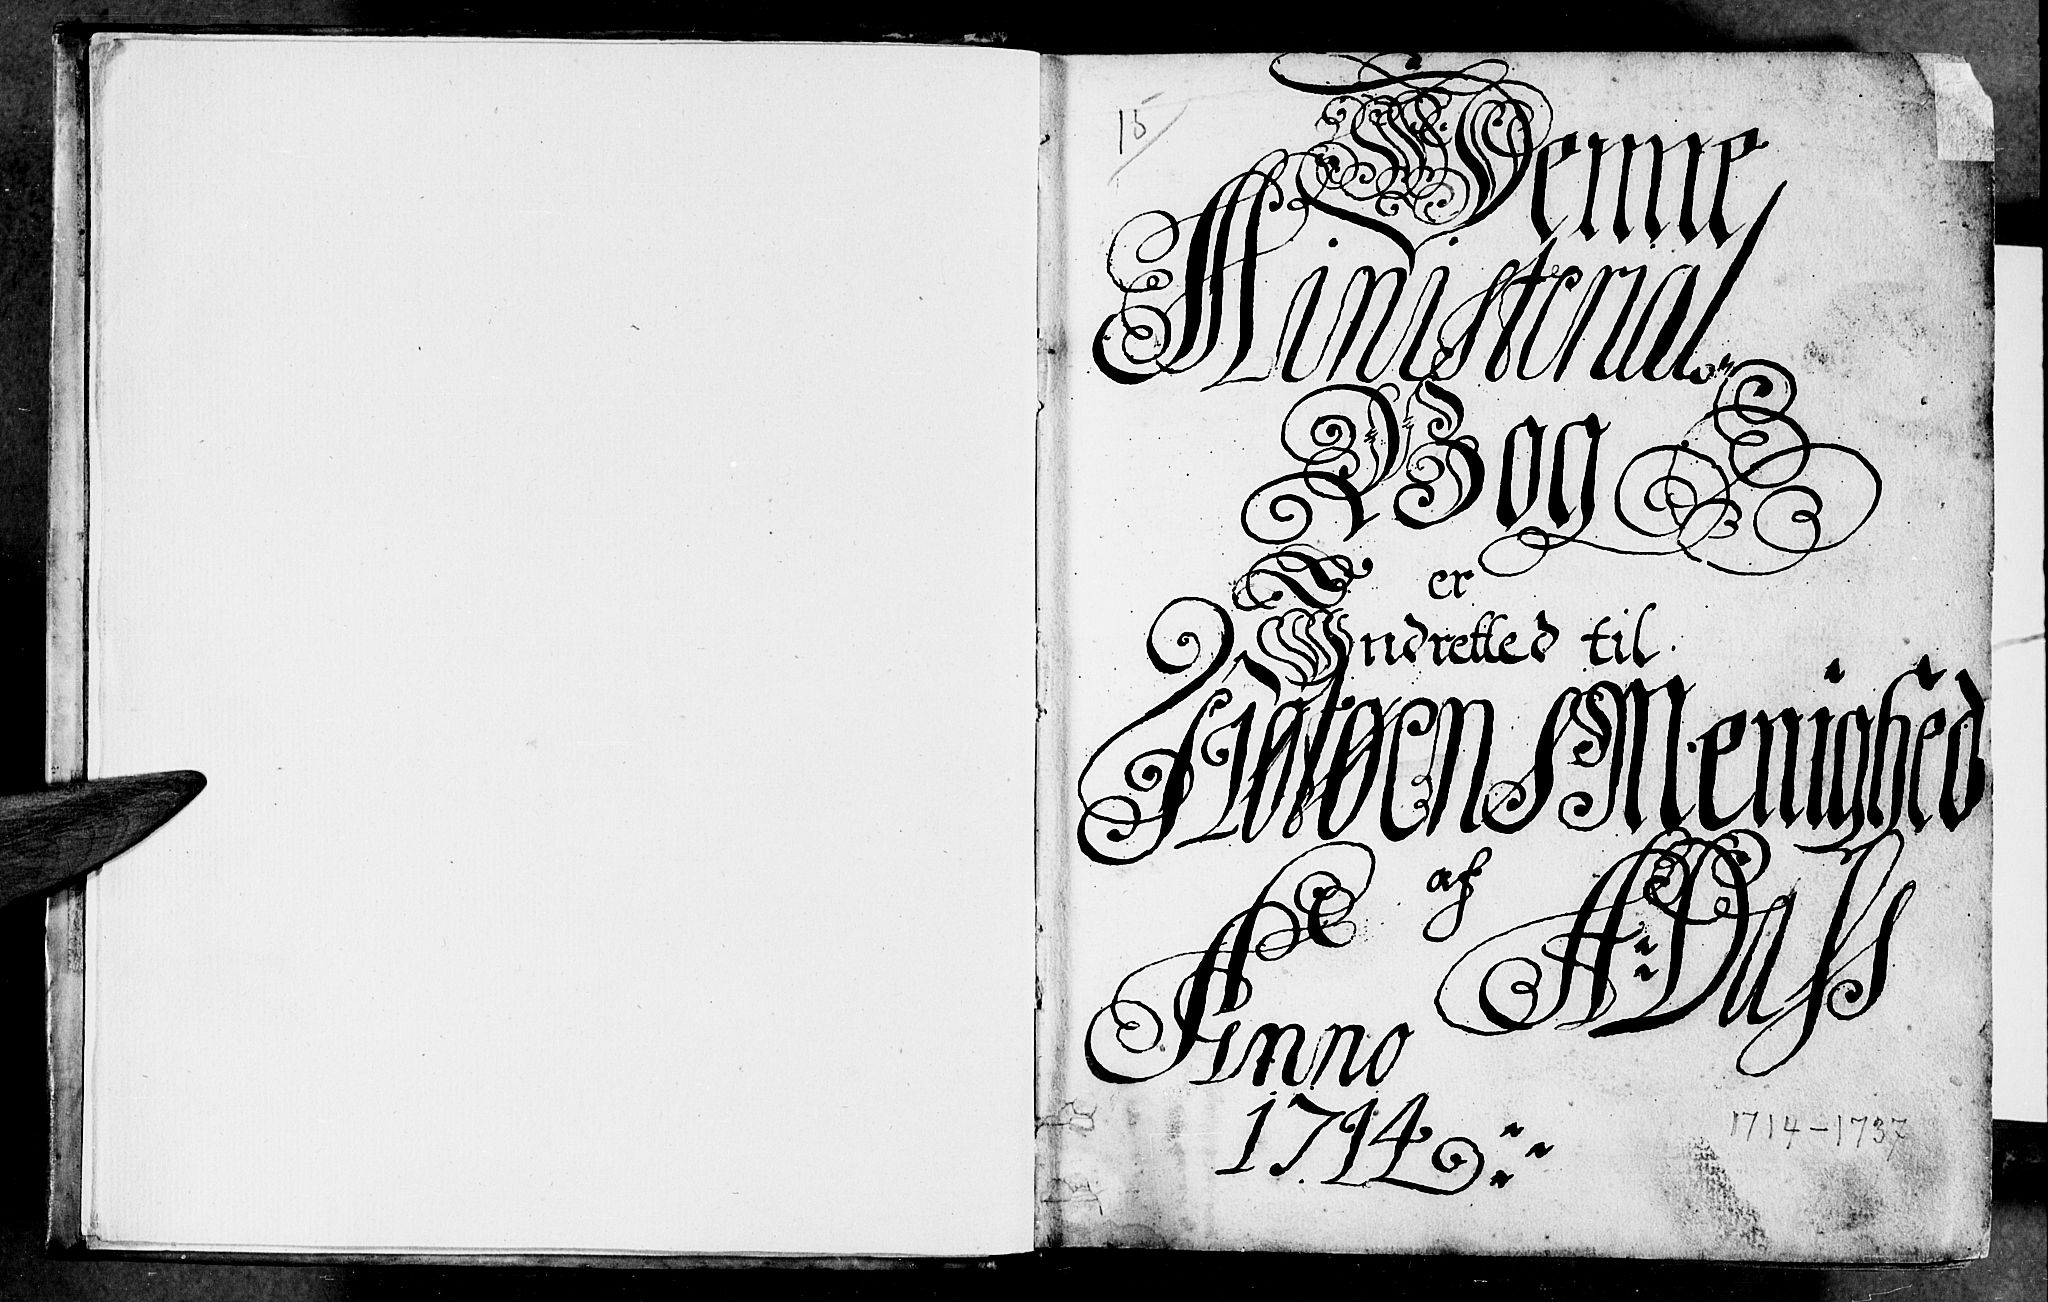 15
Denne
Ministerial
Bog
er
Indretted til
Nærøens Menighed
af
A: Dass
Anno
1714
1714-1737